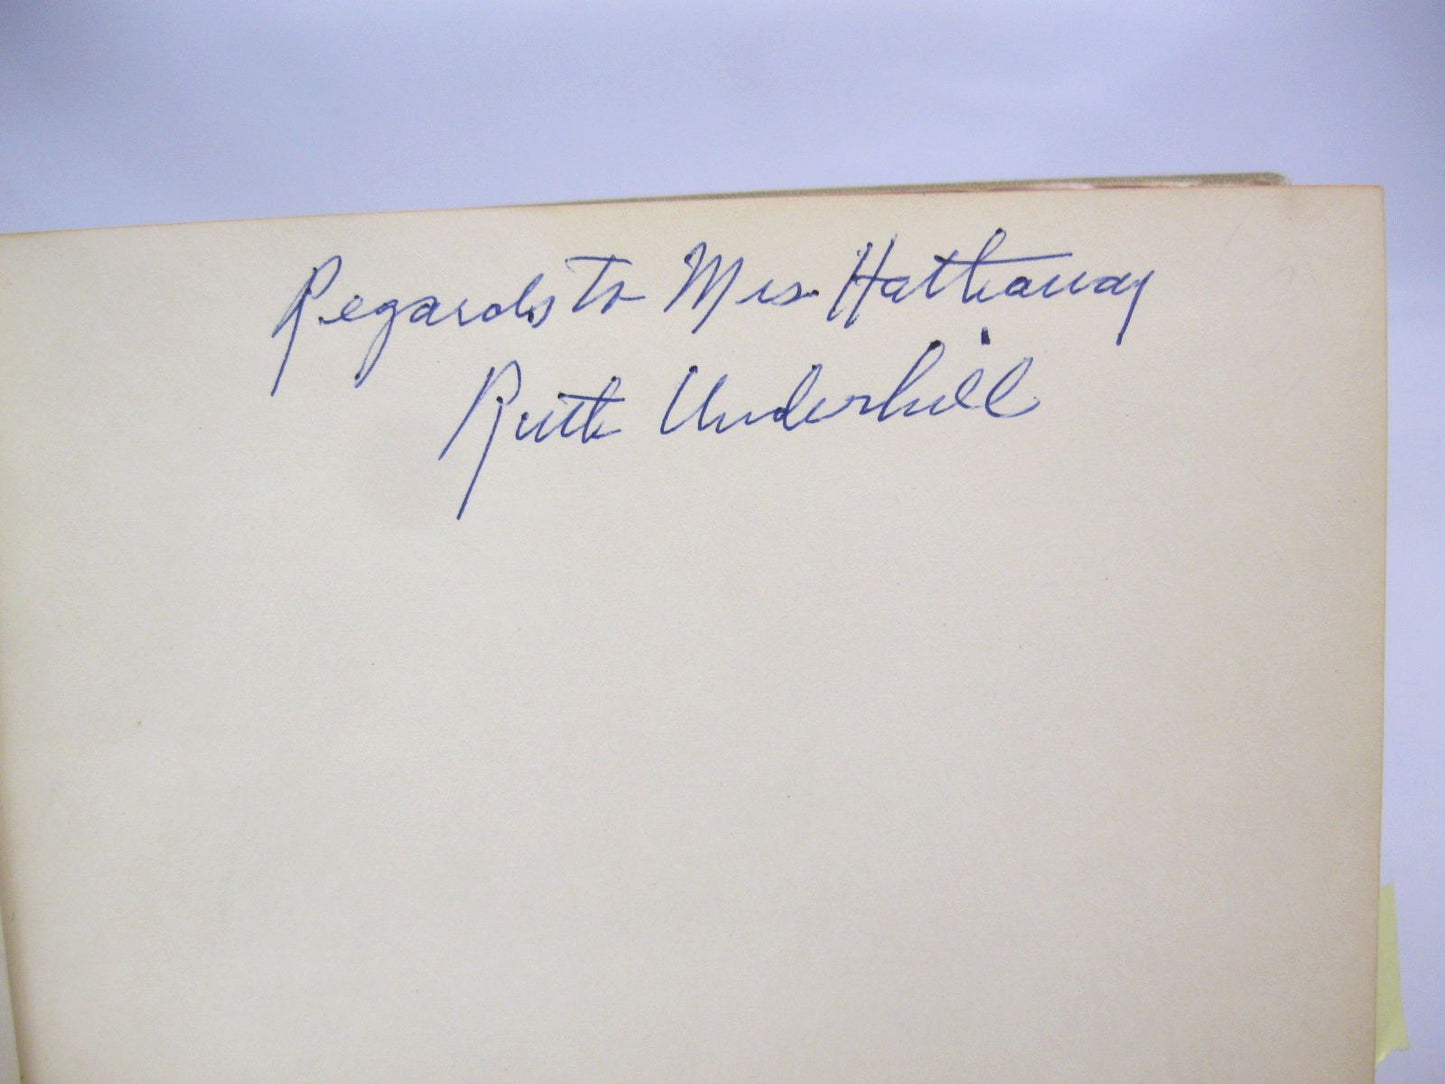 Regards to Mrs Hathaway
Ruth Underhill